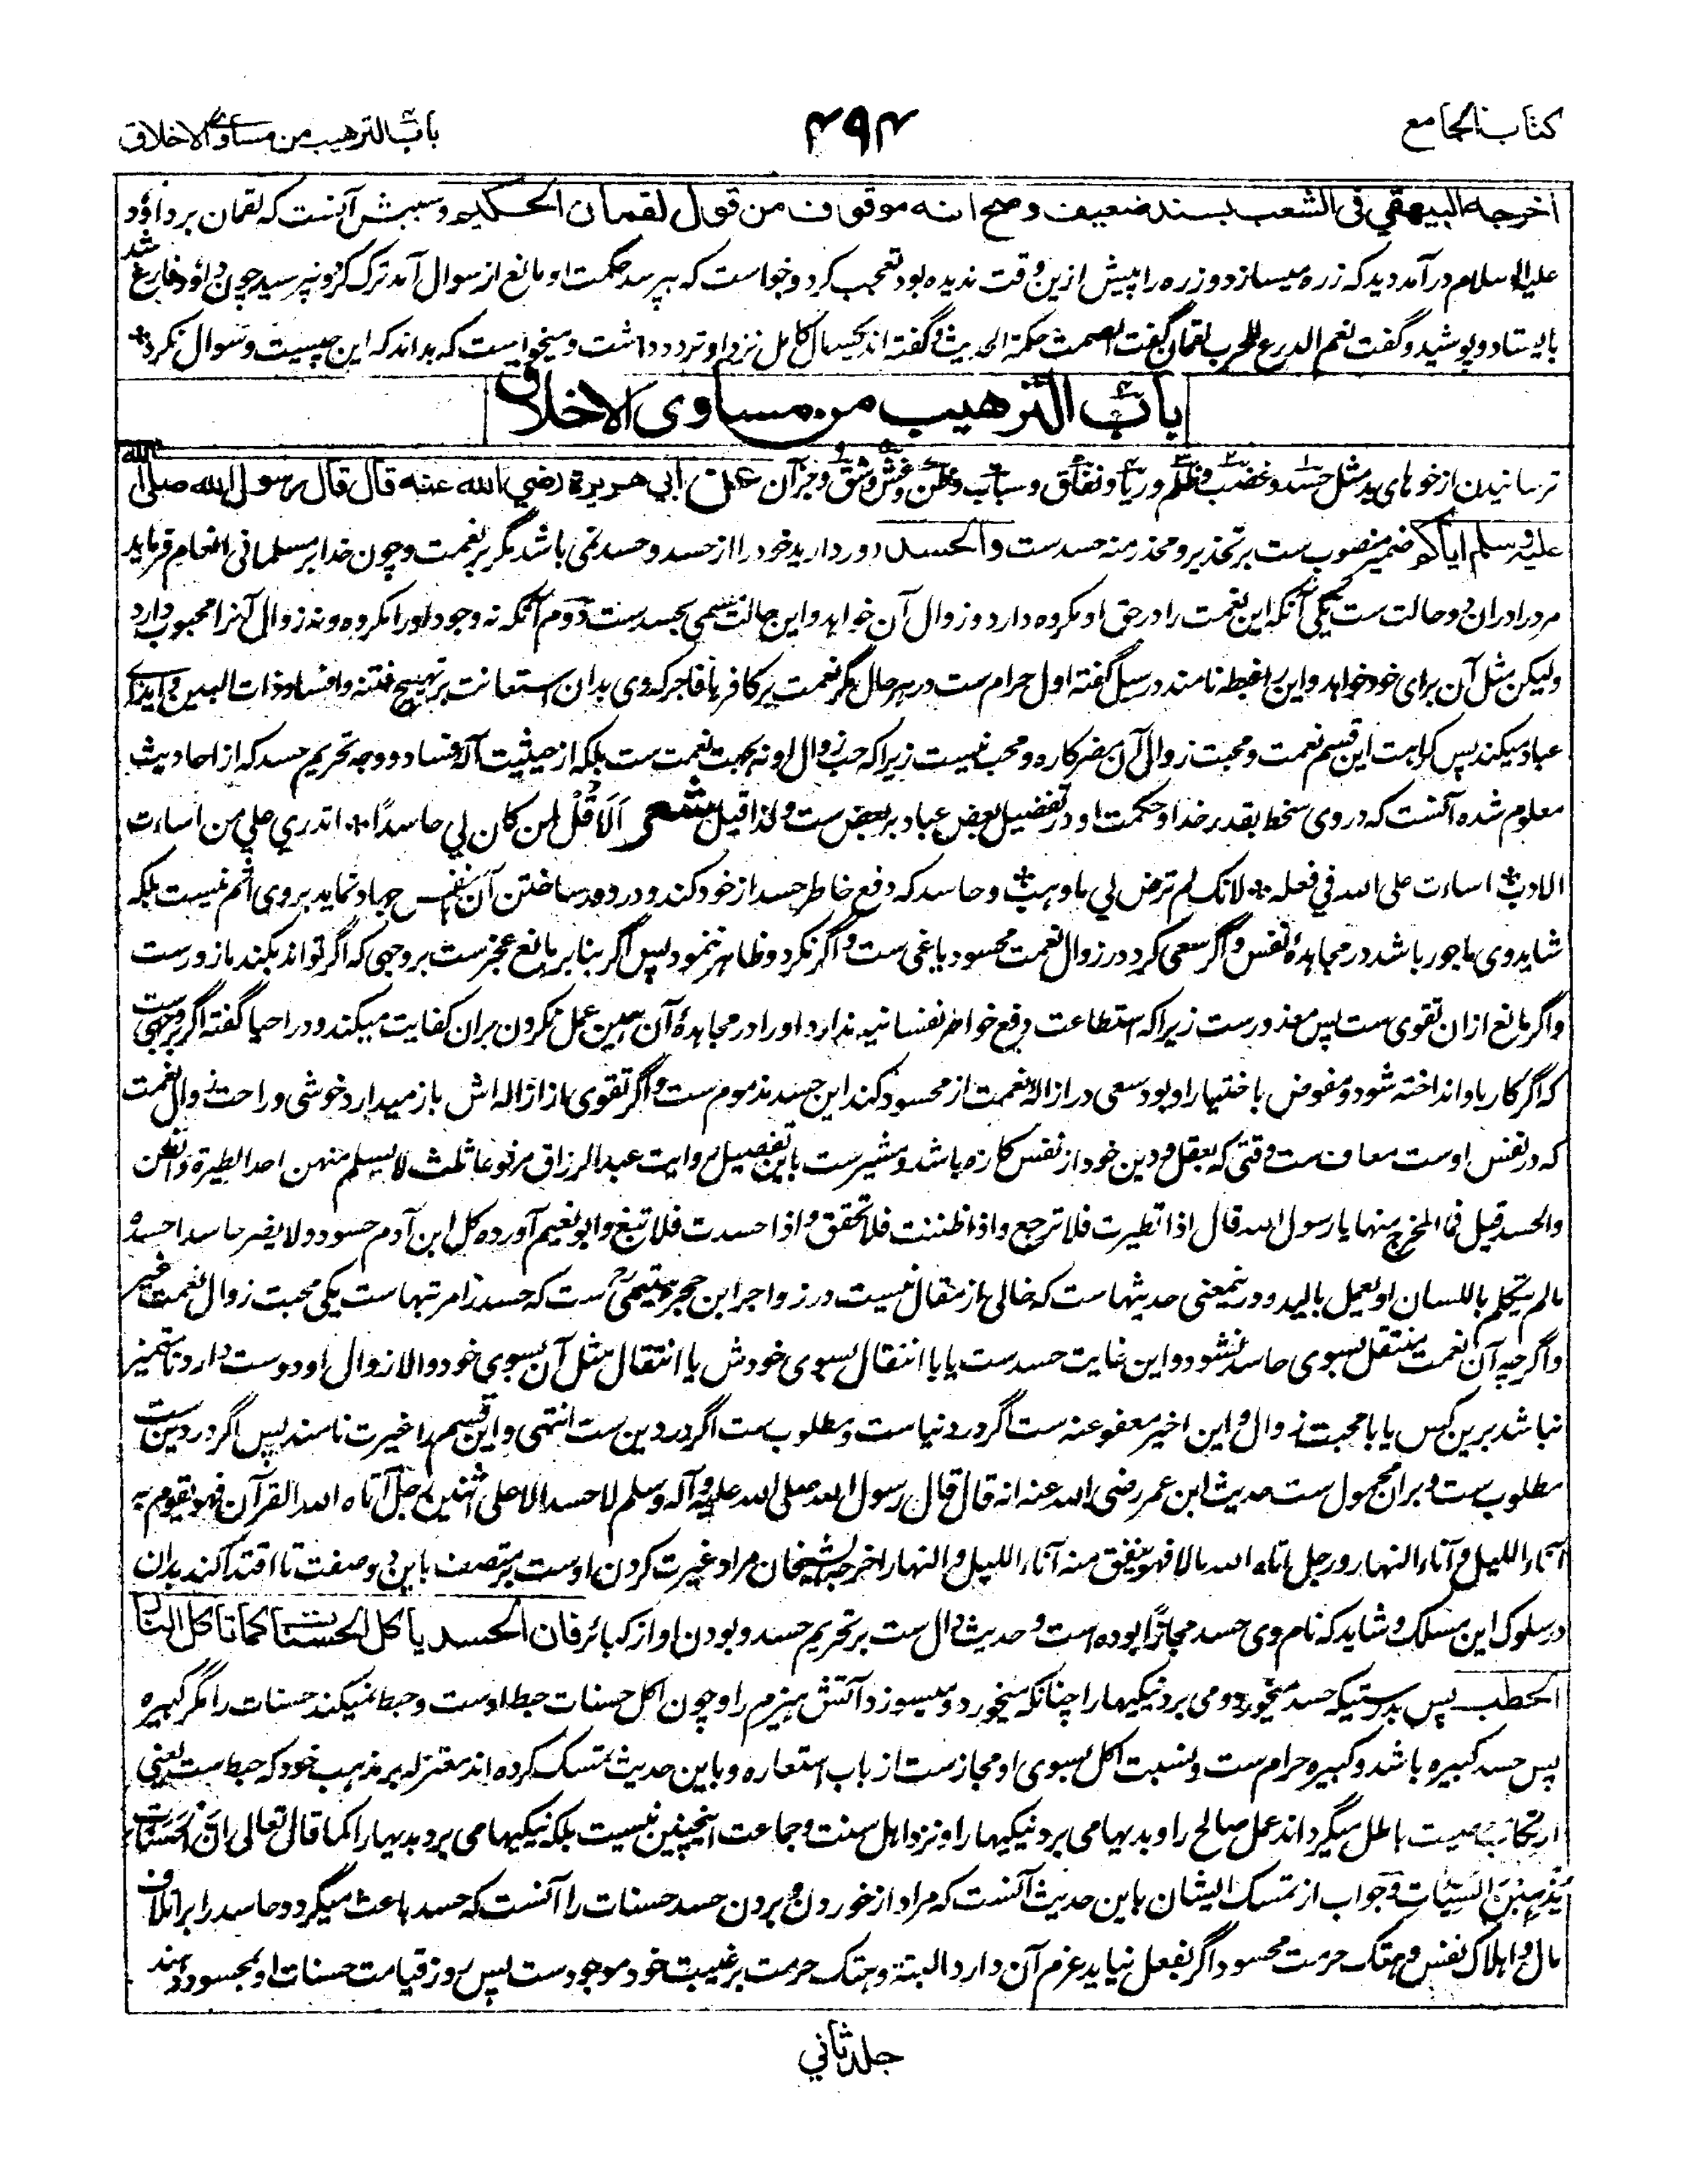 کتاب الجامع
۴۹۴
باب الترهیب من مساوی الاخلاق
اخرجه البیهقي فی الشعب بسند ضعیف وصحح انه موقوف من قول لقمان الحکیم وسببش آنست که لقمان بر داؤد
علیه السلام درآمد دید که زره میسازد و زره را پیش ازین وقت ندیده بود تعجب کرد و خواست که بپرسد حکمت او مانع از سوال آمد ترک کرد و نپرسید چون داؤد فارغ شد
بایستاد و پوشید و گفت نعم الدرع للحرب لقمان گفت الصمت حکمة الحدیث و گفته اند یکسال کامل نزد او تردد داشت و میخواست که بداند که این چیست و سوال نکرد
باب الترهیب من مساوی الاخلاق
ترسانیدن از خوهای بد مثل حسد و غضب و ظلم و ریا و نفاق و سباب و ظن و غش و فسق و جز آن عن ابي هریرة رضي الله عنه قال قال رسول الله صلی الله
علیه وسلم ایاکم ضمیر منصوب ست بر تحذیر و محذر منه حسد ست والحسد دور دارید خود را از حسد و حسد نمی باشد مگر بر نعمت و چون خدا بر مسلمانی انعام فرماید
مردرا در ان دو حالت ست یکی آنکه این نعمت را در حق او مکروه دارد و زوال آن خواهد و این حالت مسمی بحسد ست دوم آنکه نه وجود او را مکروه و نه زوال آنرا محبوب دارد
ولیکن مثل آن برای خود خواهد و این را غبطه نامند در سبل گفته اول حرام ست در هر حال مگر نعمت بر کافر یا فاجر که وی بدان استعانت بر تهییج فتنه و افساد ذات البین و ایذای
عباد میکند پس کراهت این قسم نعمت و محبت زوال آن مضر کاره و محب نیست زیرا که حب زوال او نه بجهت نعمت ست بلکه از حیثیت آلهٔ فساد و وجه تحریم حسد که از احادیث
معلوم شده آنست که در وی سخط بقدر خدا و حکمت او در تفضیل بعض عباد بر بعض ست ولذا قیل شعر اَلَا قُلْ لمن کان لي حاسدًا * اتدري علی من اساءت
الادب * اساءت علی الله في فعله * لانک لم ترض لي ما وهب * و حاسد که دفع خاطر حسد از خود کند و در دور ساختن آن بنفس جهاد نماید بر وی اثم نیست بلکه
شاید وی ماجور باشد در مجاهدهٔ نفس و اگر سعی کرد در زوال نعمت محسود باغی ست و اگر نکرد و ظاهر ننمود پس اگر بنا بر مانع عجز ست بر وجهی که اگر تواند بکند مازور ست
و اگر مانع ازان تقوی ست پس معذور ست زیرا که استطاعت دفع خواطر نفسانیه ندارد او را در مجاهدهٔ آن همین عمل نکردن بران کفایت میکند و در احیا گفته اگر بر وجهی ست
که اگر کار باو انداخته شود و مفوض باختیار او بود سعی در ازالهٔ نعمت از محسود کند این حسد مذموم ست و اگر تقوی از ازاله اش باز میدارد خوشی و راحت زوال نعمت
که در نفس اوست معاف ست وقتی که بعقل و دین خود از نفس کاره باشد و مشیر ست باین تفصیل روایت عبد الرزاق مرفوعا ثلث لا یسلم منهن احد الطیرة والظن
والحسد قیل فما المخرج منها یا رسول الله قال اذا تطیرت فلا ترجع واذا ظننت فلا تحقق واذا حسدت فلا تبغ وابو نعیم آورده کل ابن آدم حسود ولا یضر حاسدا حسده
ما لم یتکلم باللسان او یعمل بالید و درینمعنی حدیثهاست که خالی از مقال نیست در زواجر ابن حجر هیتمی ست که حسد را مرتبهاست یکی محبت زوال نعمت غیر
و اگرچه آن نعمت منتقل بسوی حاسد نشود و این غایت حسد ست یا با انتقال بسوی خودش یا انتقال مثل آن بسوی خود والا زوال او دوست دارد تا متمیز
نباشد برین کس یا با محبت زوال و این اخیر معفو عنه ست اگر در دنیاست و مطلوب ست اگر در دین ست انتهی و این قسم را غیرت نامند پس اگر در دین ست
مطلوب ست و بران محمول ست حدیث ابن عمر رضی الله عنه انه قال قال رسول الله صلی الله علیه وآله وسلم لا حسد الا علی اثنین رجل آتاه الله القرآن فهو یقوم به
آناء اللیل و آناء النهار ورجل آتاه الله مالا فهو ینفق منه آناء اللیل والنهار اخرجه الشیخان مراد غیرت کردن اوست بر متصف باین دو صفت تا اقتدا کند بدان
در سلوک این مسلک و شاید که نام وی حسد مجازًا بوده است و حدیث دال ست بر تحریم حسد و بودن او از کبائر فان الحسد یأکل الحسنات کما تأکل النار
الحطب پس بدرستیکه حسد میخورد و می برد نیکیها را چنانکه میخورد و میسوزد آتش هیزم را و چون اکل حسنات حبط اوست و حبط نمیکند حسنات را مگر کبیره
پس حسد کبیره باشد و کبیره حرام ست و نسبت اکل بسوی او مجاز ست از باب استعاره و باین حدیث تمسک کرده اند معتزله بر مذهب خود که حبط ست یعنی
ارتکاب معصیت باطل میگرداند عمل صالح را و بدیها می برد نیکیها را و نزد اهل سنت و جماعت اینچنین نیست بلکه نیکیها می برد بدیها را کما قال تعالی اِنَّ الْحَسَنَاتِ
یُذْهِبْنَ السَّیِّئَاتِ و جواب از تمسک ایشان باین حدیث آنست که مراد از خوردن و بردن حسد حسنات را آنست که حسد باعث میگردد حاسد را بر اتلاف
مال و اهلاک نفس و هتک حرمت محسود اگر بفعل نیاید عزم آن دارد البته و هتک حرمت بر غیبت خود موجود ست پس روز قیامت حسنات او بمحسود دهند
جلد ثاني